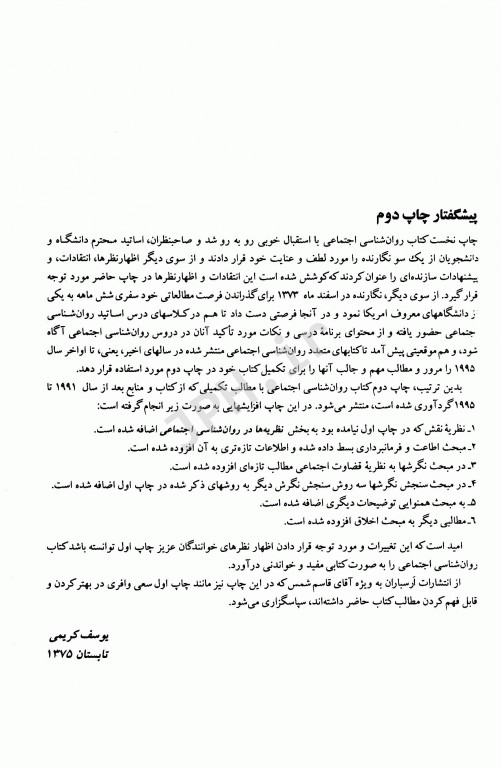 پیشگفتار چاپ دوم
چاپ نخست کتاب روان‌شناسی اجتماعی با استقبال خوبی رو به رو شد و صاحبنظران، اساتید محترم دانشگاه و
دانشجویان از یک سو نگارنده را مورد لطف و عنایت خود قرار دادند و از سوی دیگر اظهارنظرها، انتقادات، و
پیشنهادات سازنده‌ای را عنوان کردند که کوشش شده است این انتقادات و اظهارنظرها در چاپ حاضر مورد توجه
قرار گیرد. از سوی دیگر، نگارنده در اسفند ماه ۱۳۷۳ برای گذراندن فرصت مطالعاتی خود سفری شش ماهه به یکی
ز دانشگاههای معروف امریکا نمود و در آنجا فرصتی دست داد تا هم در کلاسهای درس اساتید روان‌شناسی
جتماعی حضور یافته و از محتوای برنامهٔ درسی و نکات مورد تأکید آنان در دروس روان‌شناسی اجتماعی آگاه
شود، و هم موقعیتی پیش آمد تا کتابهای متعدد روان‌شناسی اجتماعی منتشر شده در سالهای اخیر، یعنی، تا اواخر سال
۱۹۹۵ را مرور و مطالب مهم و جالب آنها را برای تکمیل کتاب خود در چاپ دوم مورد استفاده قرار دهد.
بدین ترتیب، چاپ دوم کتاب روان‌شناسی اجتماعی با مطالب تکمیلی که از کتاب و منابع بعد از سال ۱۹۹۱ تا
۱۹۹۵ گردآوری شده است، منتشر می‌شود. در این چاپ افزایشهایی به صورت زیر انجام گرفته است:
۱ـ نظریهٔ نقش که در چاپ اول نیامده بود به بخش نظریه‌ها در روان‌شناسی اجتماعی اضافه شده است.
۲ـ مبحث اطاعت و فرمانبرداری بسط داده شده و اطلاعات تازه‌تری به آن افزوده شده است.
۳ـ در مبحث نگرشها به نظریهٔ قضاوت اجتماعی مطالب تازه‌ای افزوده شده است.
۴ـ در مبحث سنجش نگرشها سه روش سنجش نگرش دیگر به روشهای ذکر شده در چاپ اول اضافه شده است.
۵ـ به مبحث همنوایی توضیحات دیگری اضافه شده است.
۶ـ مطالبی دیگر به مبحث اخلاق افزوده شده است.
امید است که این تغییرات و مورد توجه قرار دادن اظهار نظرهای خوانندگان عزیز چاپ اول توانسته باشد کتاب
روان‌شناسی اجتماعی را به صورت کتابی مفید و خواندنی درآورد.
از انتشارات ارسباران به ویژه آقای قاسم شمس که در این چاپ نیز مانند چاپ اول سعی وافری در بهتر کردن و
قابل فهم کردن مطالب کتاب حاضر داشته‌اند، سپاسگزاری می‌شود.
یوسف کریمی
تابستان ۱۳۷۵